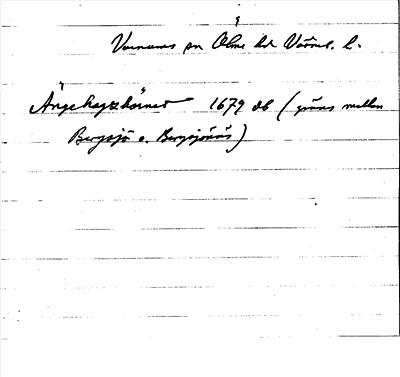 Varnums sn Ölme hd Värml. l.
Ängehagshörnet 1679 db (gräns mellan
Bergsjö o. Bergsjöås)